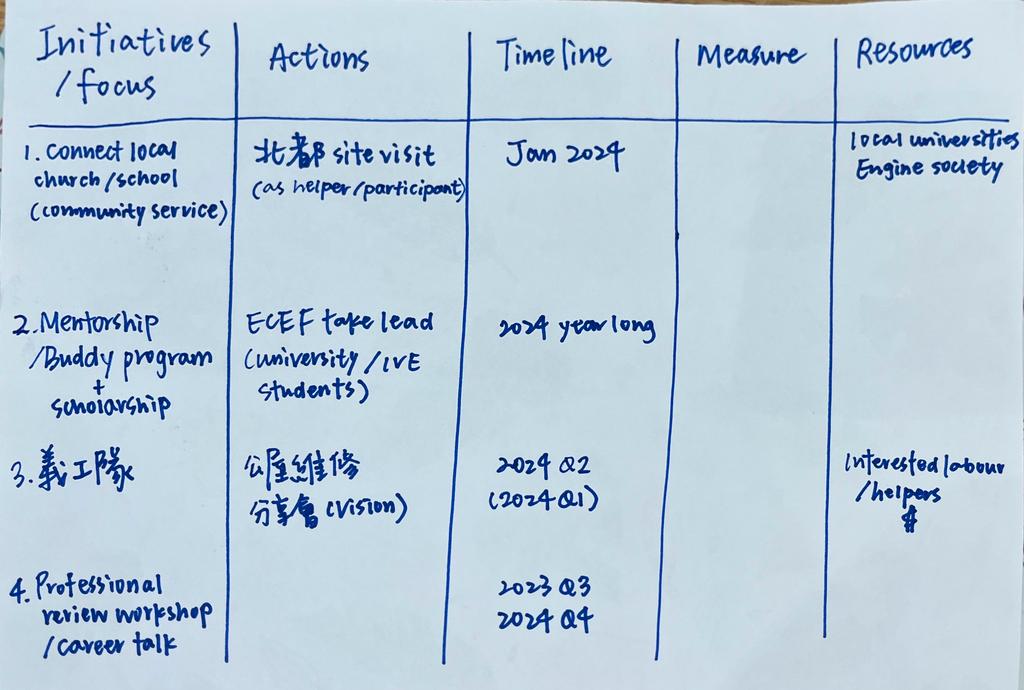 Initiatives
/focus
Actions
Timeline
Measure
Resources
1. Connect local
church/school
(community service)
北都 site visit
(as helper/participant)
Jan 2024
local universities
Engine society
2. Mentorship
/Buddy program
+
scholarship
ECEF take lead
(university/IVE
students)
2024 year long
3. 義工隊
公屋維修
分享會 (vision)
2024 Q2
(2024 Q1)
Interested labour
/helpers
$
4. Professional
review workshop
/career talk
2023 Q3
2024 Q4